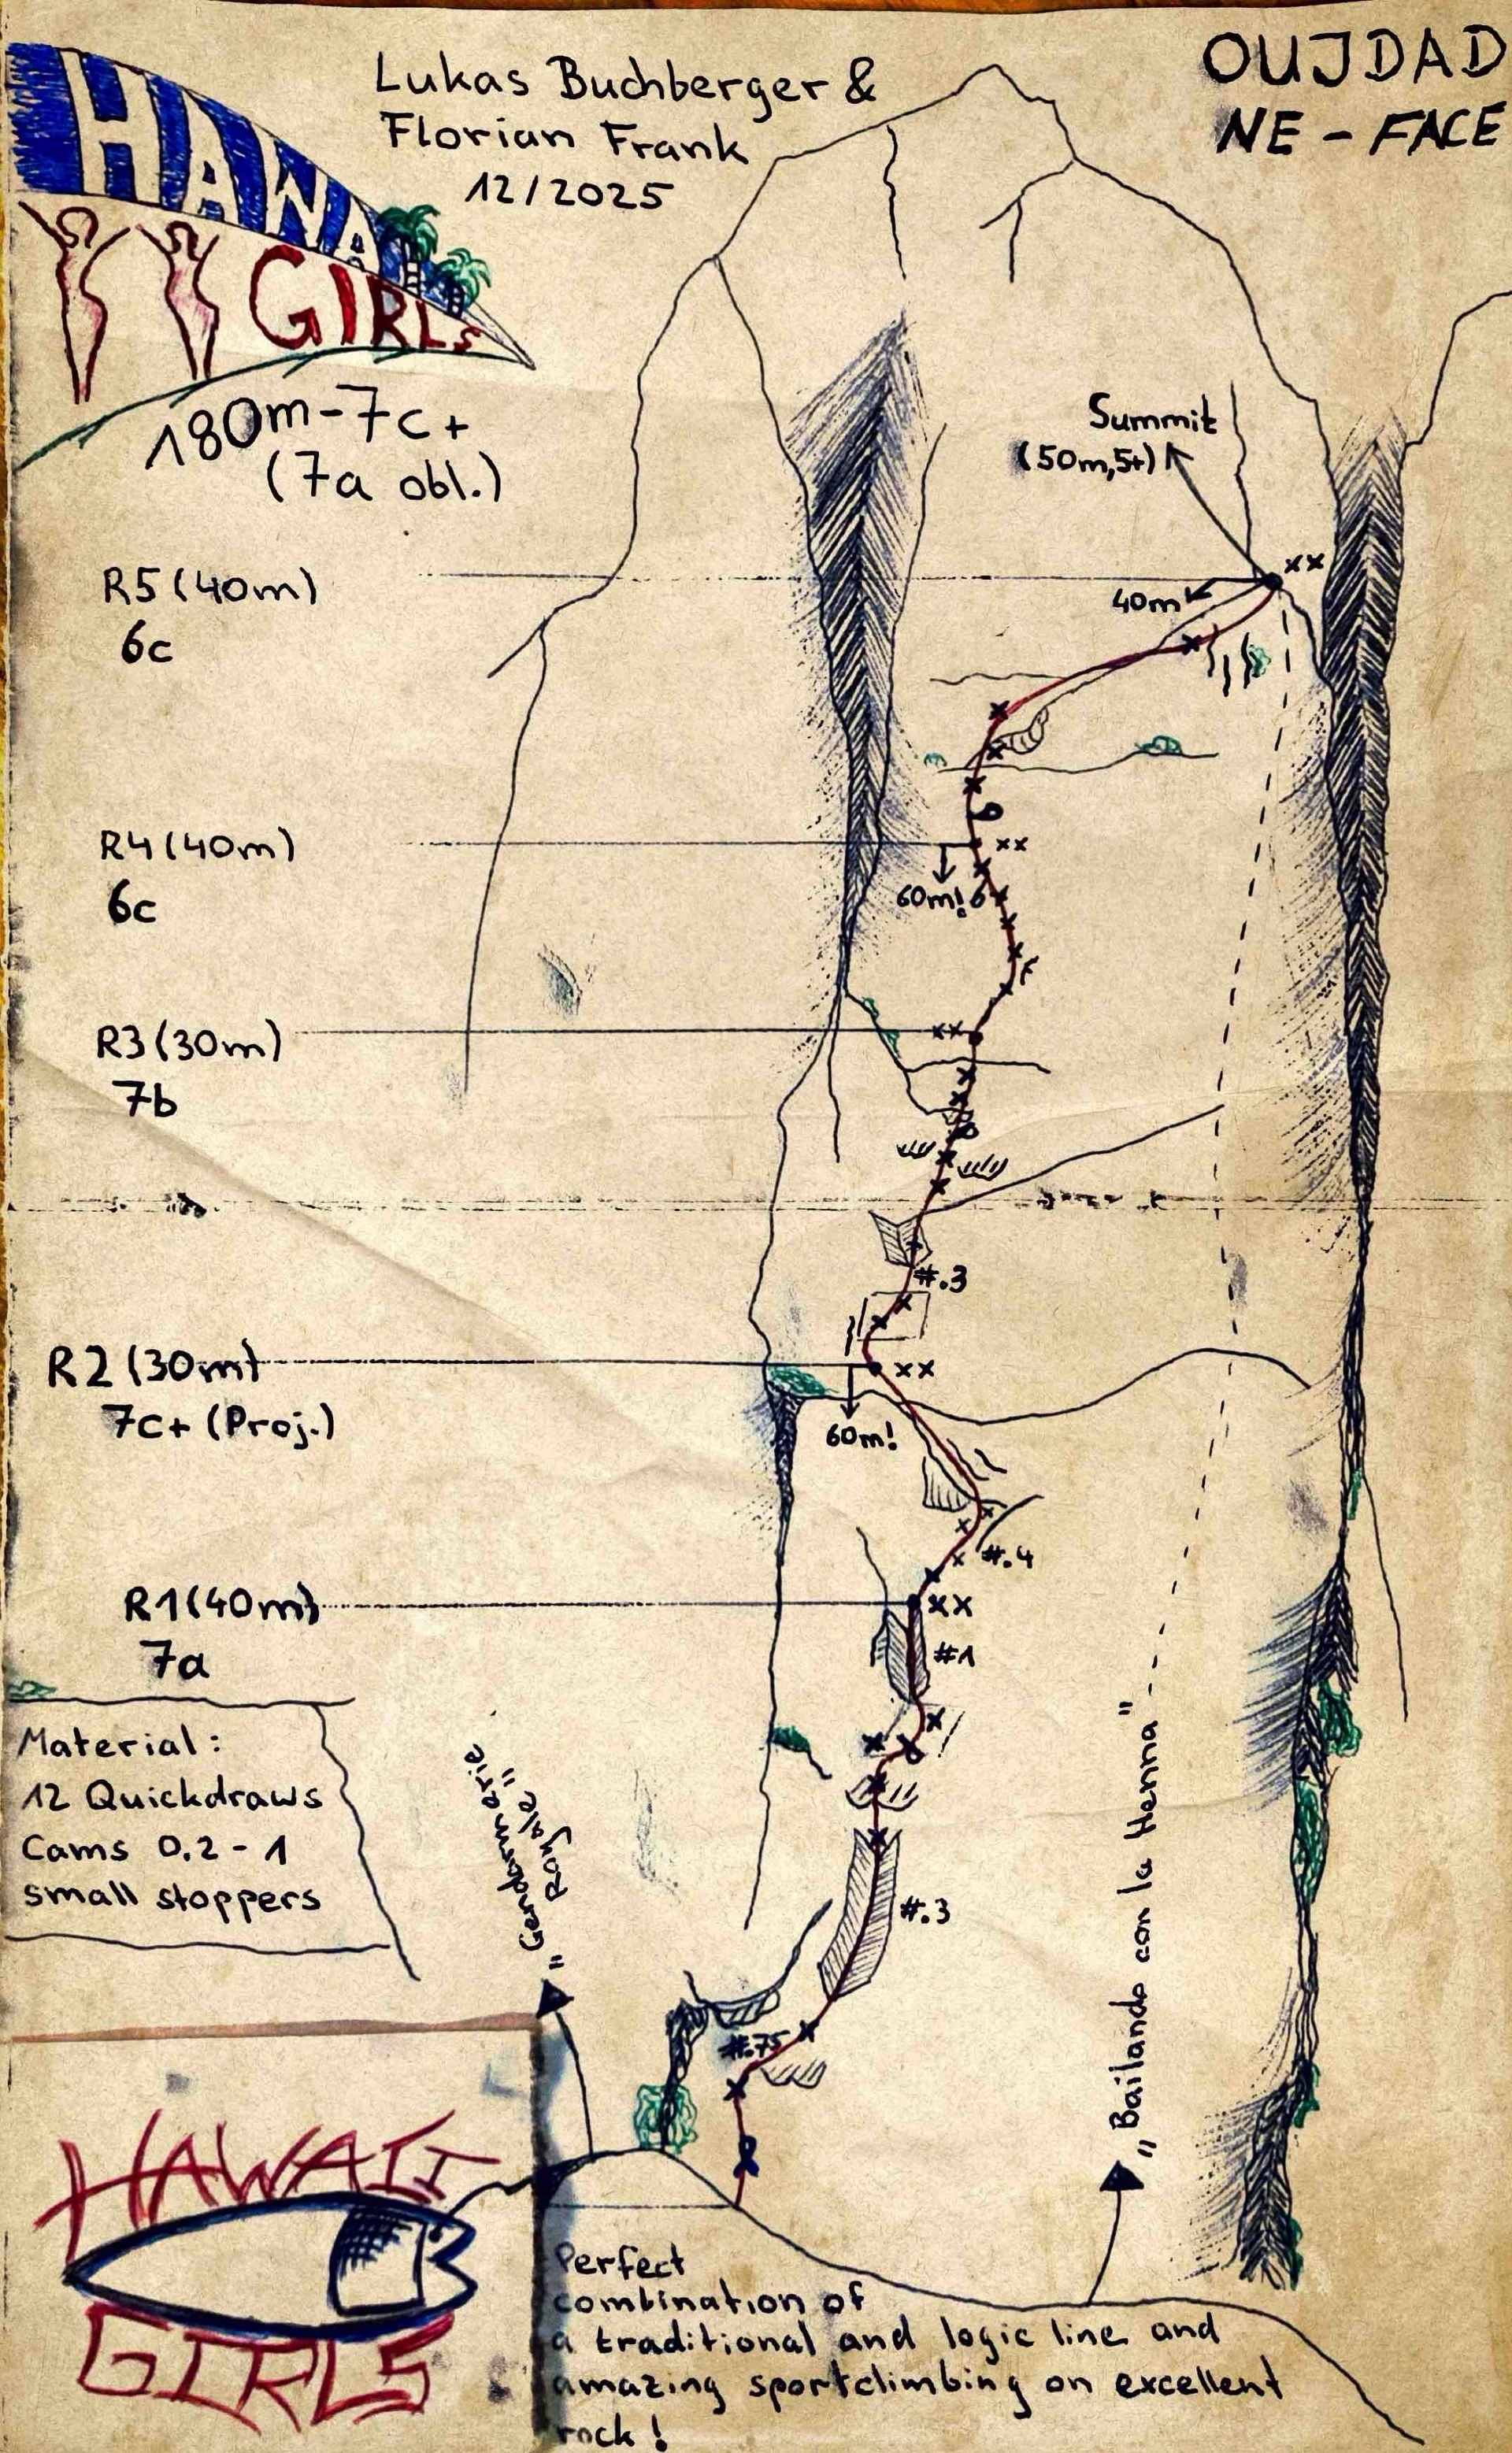 HAWAII
GIRLS
Lukas Buchberger &
Florian Frank
12/2025
OUJDAD
NE - FACE
180m - 7c+
(7a obl.)
Summit
(50m, 5+)
R5 (40m)
6c
xx
40m
R4 (40m)
6c
xx
60m!
R3 (30m)
7b
xx
#.3
R2 (30m)
7c+ (Proj.)
xx
60m!
#.4
R1 (40m)
7a
xx
#1
Material:
12 Quickdraws
Cams 0.2 - 1
small stoppers
#.3
#.75
"Gendarmerie
Royale"
„Bailando con la Henna"
HAWAII
GIRLS
Perfect
combination of
a traditional and logic line and
amazing sportclimbing on excellent
rock!